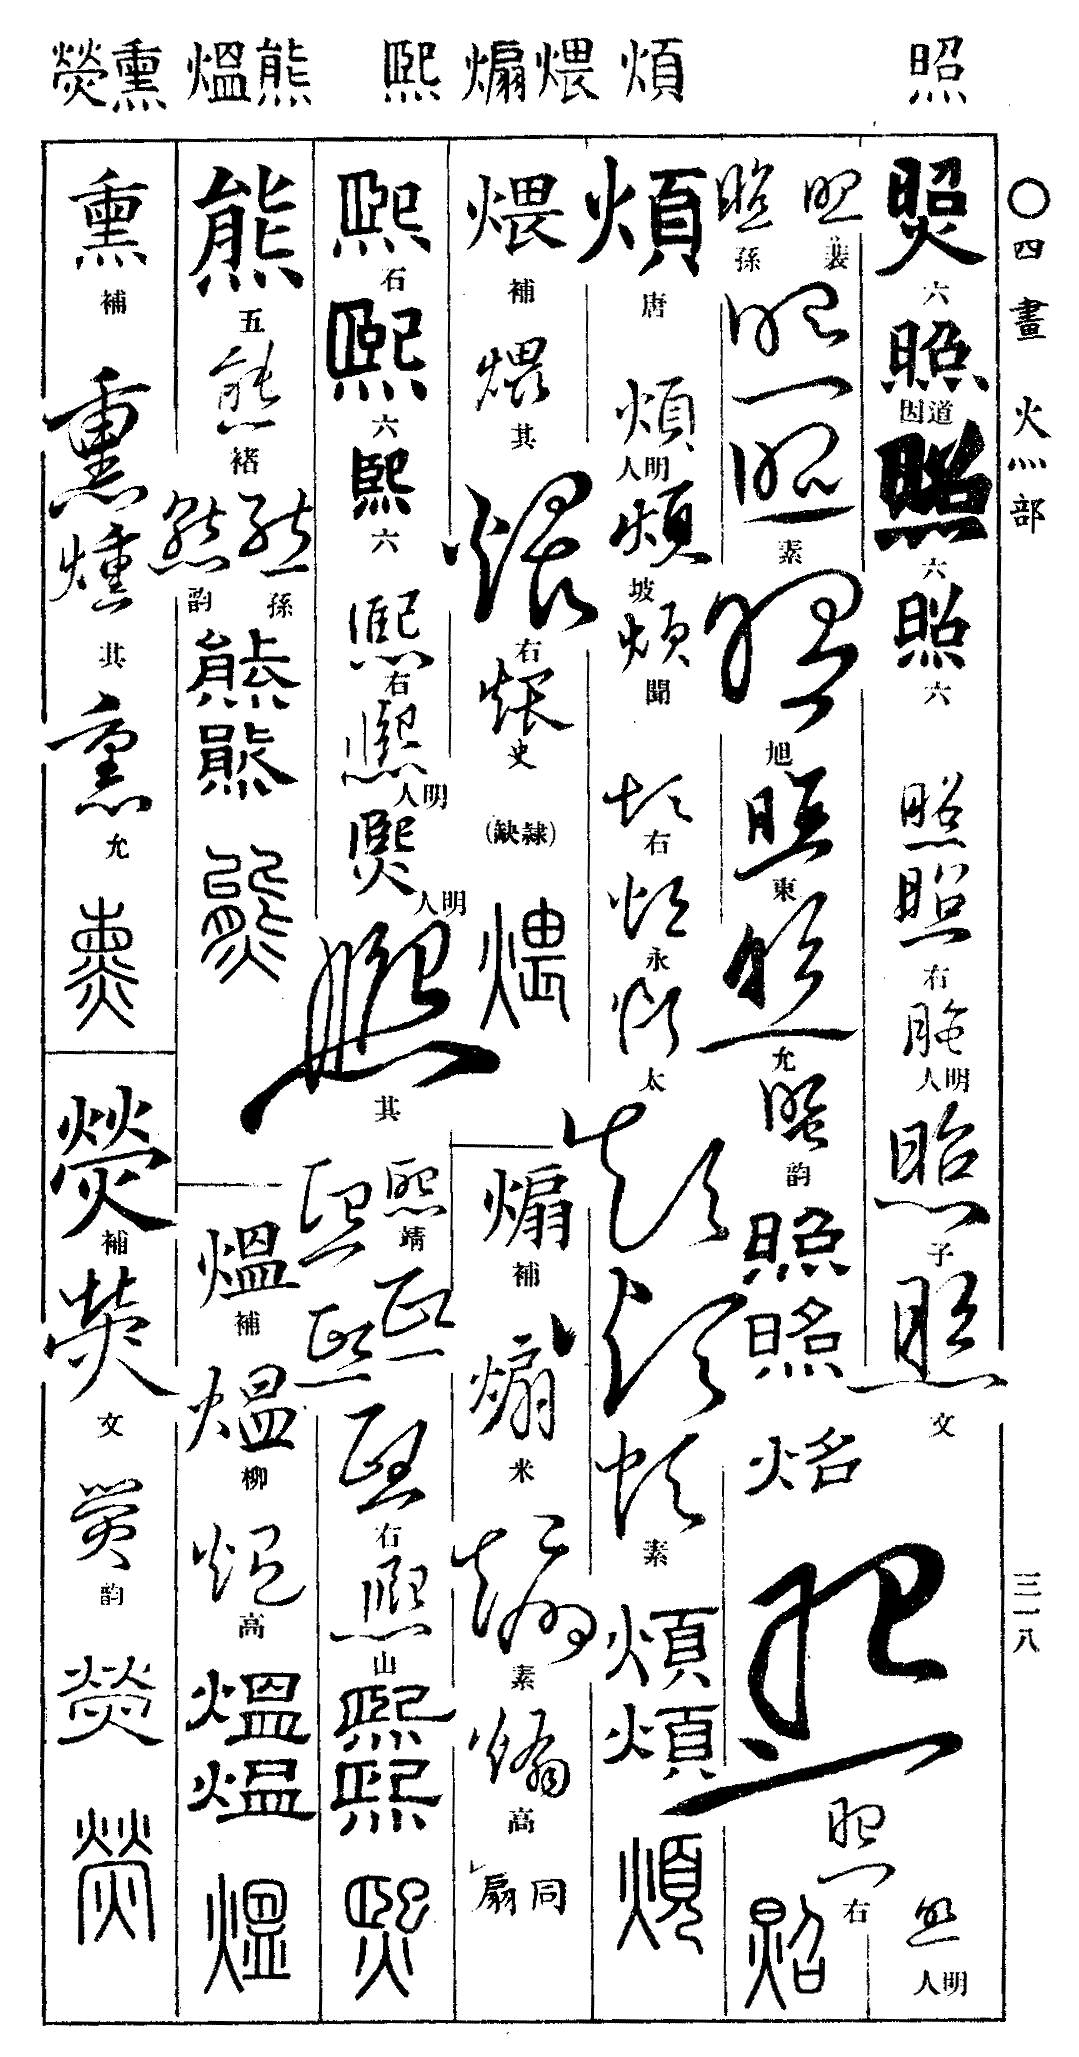 照
煩
煨煽
熙
熊熅
熏熒
〇四畫 火灬部 三一八
照 六 照 道因 照 六 照 六 照 照 右 照 明人 照 子 照 文 照 明人
照 裴 照 孫 照 照 素 照 旭 照 東 照 允 照 韵 照 照 照 照 照 右 照
煩 唐 煩 明人 煩 坡 煩 聞 煩 右 煩 永 煩 太 煩 煩 煩 素 煩 煩 煩
煨 補 煨 其 煨 右 煨 史 (隸缺) 煨
煽 補 煽 米 煽 素 煽 高 同扇
熙 石 熙 六 熙 六 熙 右 熙 明人 熙 明人 熙 其 熙 靖 熙 熙 熙 熙 右 熙 山 熙 熙 熙
熊 五 熊 褚 熊 孫 熊 韵 熊 熊 熊
熅 補 熅 柳 熅 高 熅 熅 熅
熏 補 熏 燻 其 熏 允 熏
熒 補 熒 文 熒 韵 熒 熒